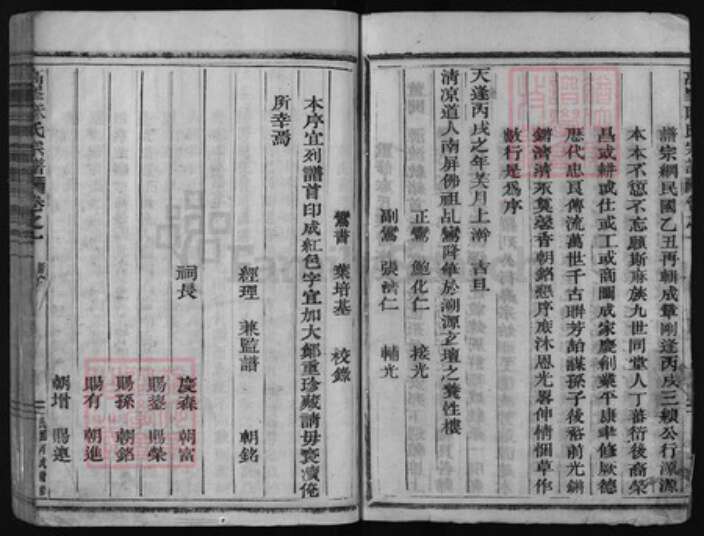 譜宗綱民國乙丑再輯成章剛逢丙戌三穎公行源源
本本不憶不忘願斯麻族九世同堂人丁蕃衍後裔榮
昌或耕或仕或工或商闔成家慶創業平康聿修厥德
歷代忠良傳流萬世千古聯芳詒謀孫子後裕前光鏘
鏘濟濟永隻馨香朝銘懇序庶沐恩光畧伸情悃草作
數行是爲序
天逢丙戌之年芙月上澣 吉旦
清凉道人南屏佛祖乩鸞降筆於溯源之壇之養性樓
正鸞 鮑化仁 接光
副鸞 張濟仁 輔光
鸞書 葉培基 校錄
本序宜列譜首印成紅色字宜加大鄭重珍藏請毋褻瀆俺
所幸焉
經理 兼監譜 朝銘
祠長
慶森 朝富
賜鋆 賜榮
賜孫 朝銘
賜有 朝進
朝增 賜連
氏宗譜 卷之一